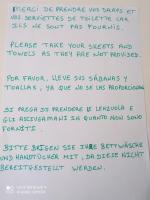 MERCI DE PRENDRE VOS DRAPS ET
VOS SERVIETTES DE TOILETTE CAR
ILS NE SONT PAS FOURNIS.
PLEASE TAKE YOUR SHEETS AND
TOWELS AS THEY ARE NOT PROVIDED.
POR FAVOR, LLEVE SUS SÁBANAS Y
TOALLAS, YA QUE NO SE LAS PROPORCIONAN
SI PREGA DI PRENDERE LE LENZUOLA E
GLI ASCIUGAMANI IN QUANTO NON SONO
FORNITI.
BITTE BRIGEN SIE IHRE BETTWÄSCHE
UND HANDTÜCHER MIT, DA DIESE NICHT
BEREITGESTELLT WERDEN.